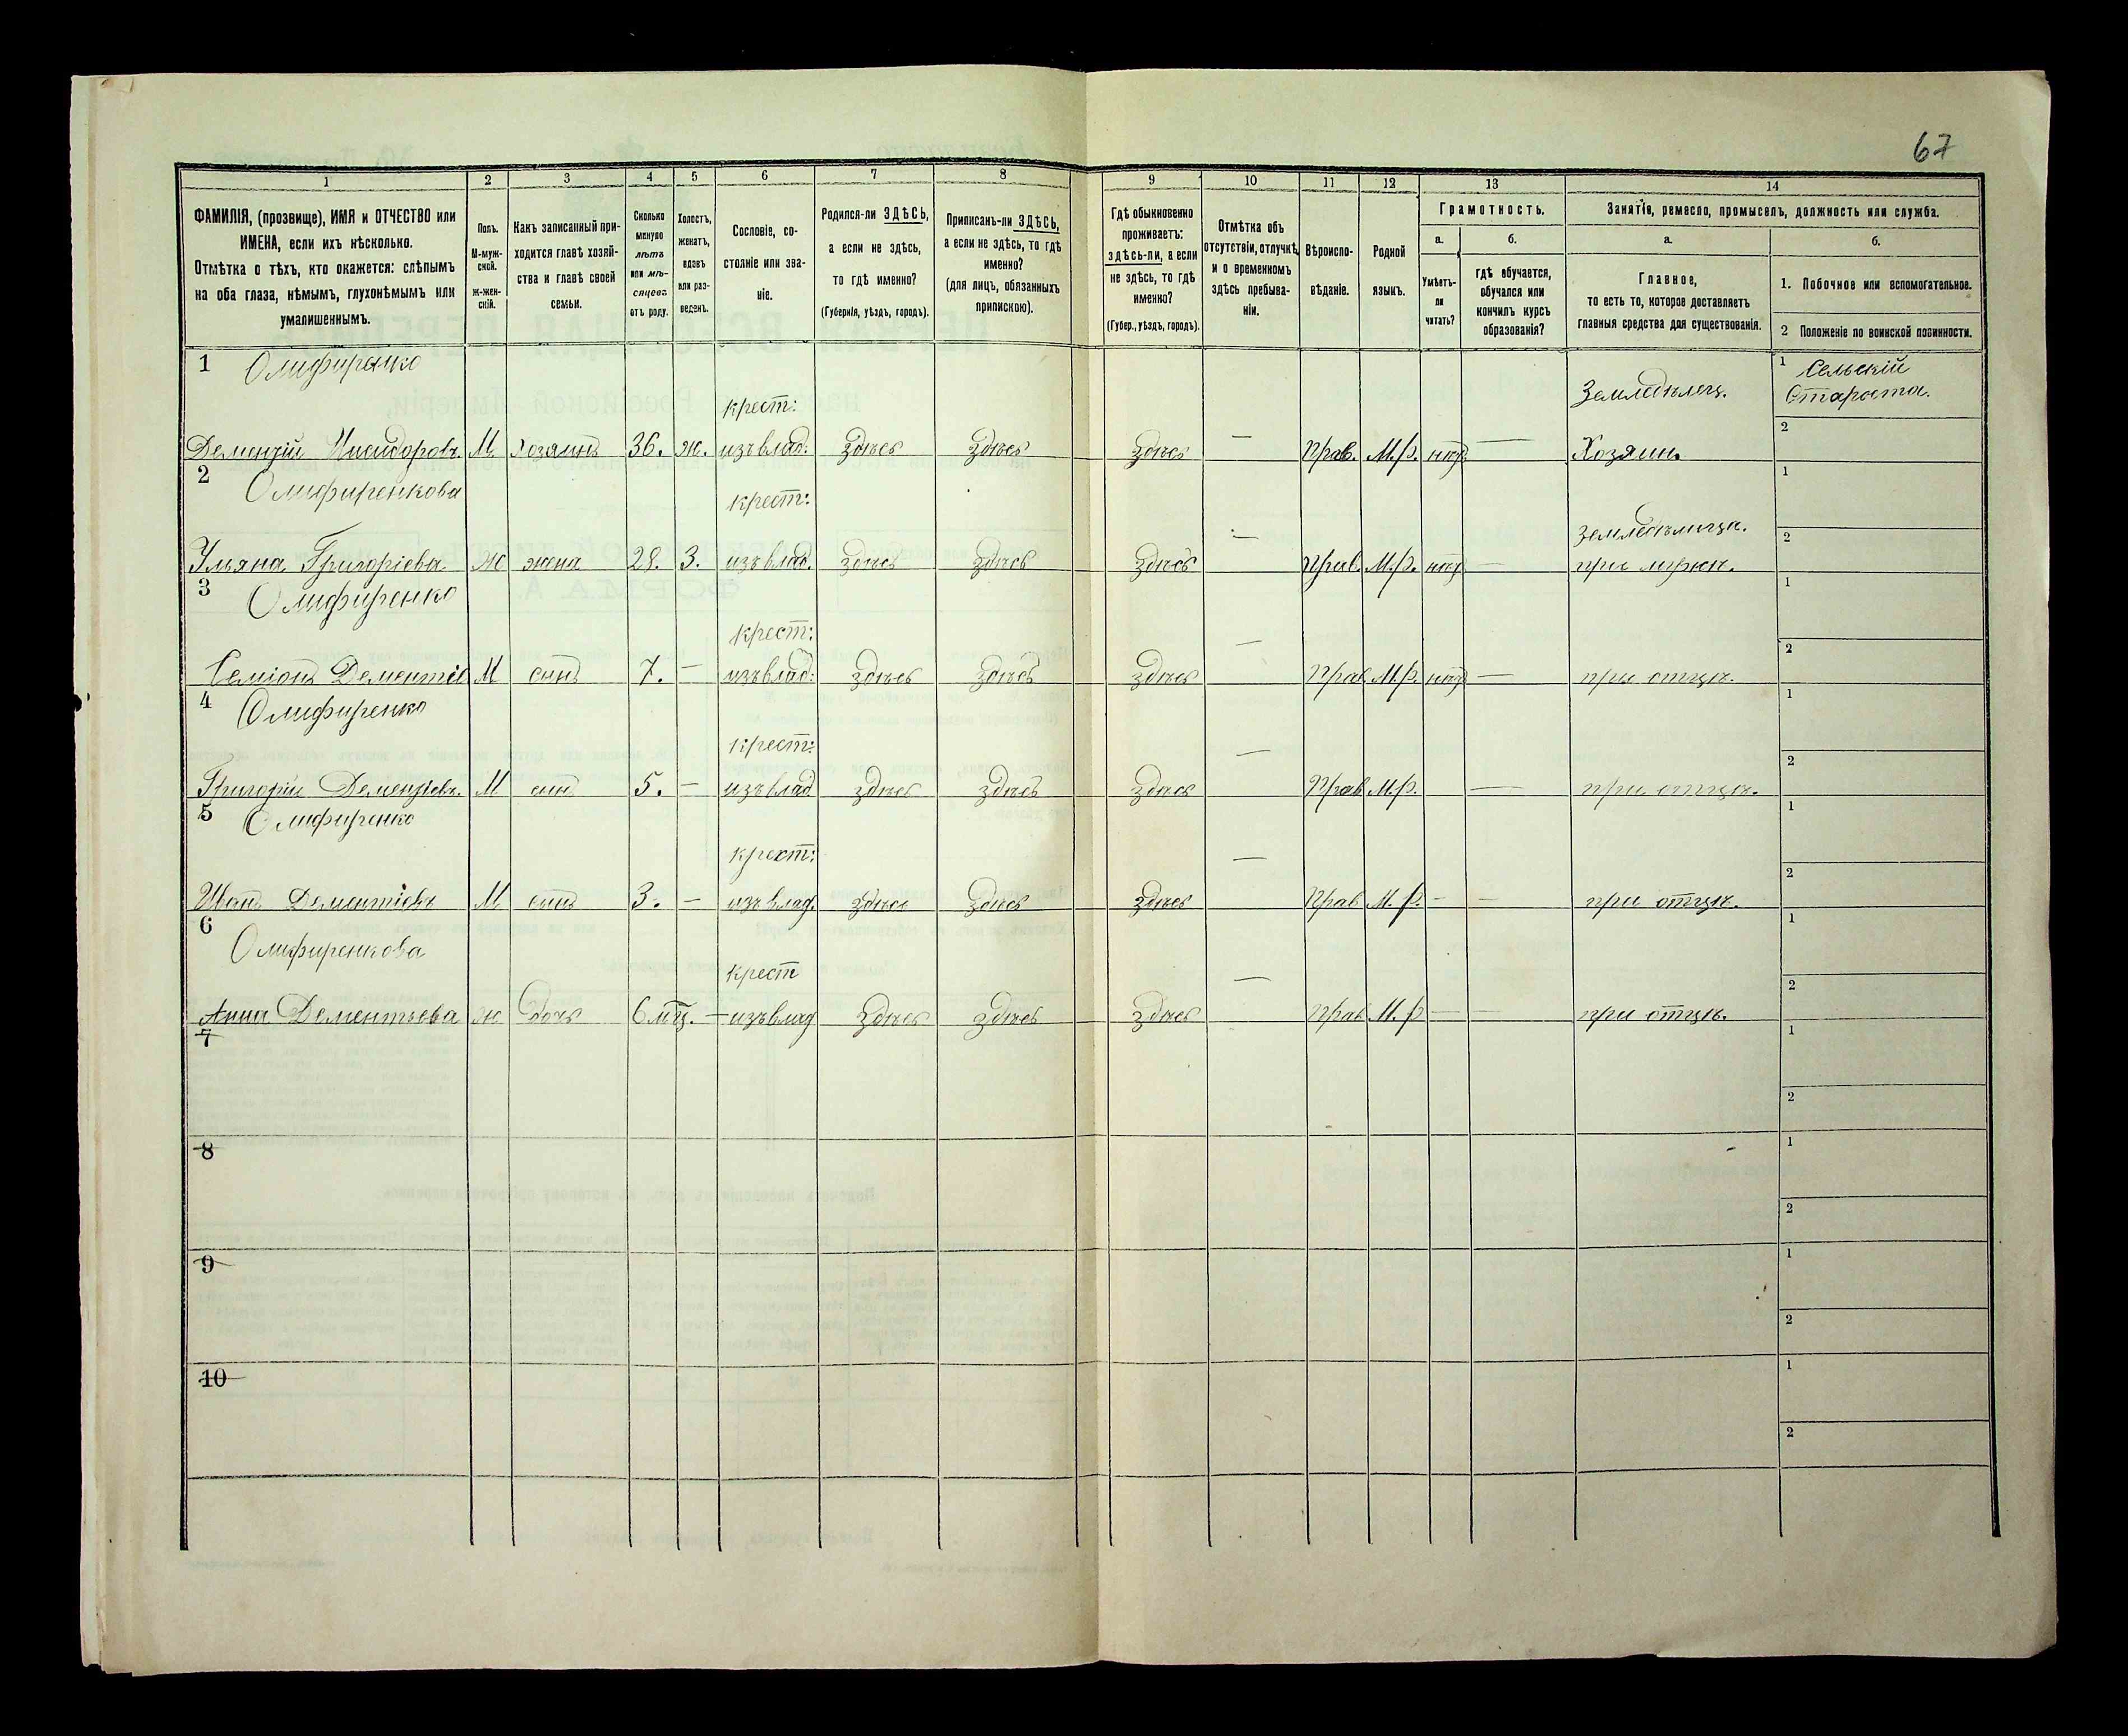 67
1 2 3 4 5 6 7 8 9 10 11 12 13 14
ФАМИЛІЯ, (прозвище), ИМЯ и ОТЧЕСТВО или
ИМЕНА, если ихъ нѣсколько.
Отмѣтка о тѣхъ, кто окажется: слѣпымъ
на оба глаза, нѣмымъ, глухонѣмымъ или
умалишеннымъ.
Полъ.
М-муж-
ской.
Ж-жен-
скій.
Какъ записанный при-
ходится главѣ хозяй-
ства и главѣ своей
семьи.
Сколько
минуло
лѣтъ
или мѣ-
сяцевъ
отъ роду.
Холостъ,
женатъ,
вдовъ
или раз-
веденъ.
Сословіе, со-
стояніе или зва-
ніе.
Родился-ли ЗДѢСЬ,
а если не здѣсь,
то гдѣ именно?
(Губернія, уѣздъ, городъ).
Приписанъ-ли ЗДѢСЬ,
а если не здѣсь, то гдѣ
именно?
(для лицъ, обязанныхъ
припискою).
Гдѣ обыкновенно
проживаетъ:
здѣсь-ли, а если
не здѣсь, то гдѣ
именно?
(Губер., уѣздъ, городъ).
Отмѣтка объ
отсутствіи, отлучкѣ
и о временномъ
здѣсь пребыва-
ніи.
Вѣроиспо-
вѣданіе.
Родной
языкъ.
Грамотность.
а.
Умѣетъ-
ли
читать?
б.
гдѣ обучается,
обучался или
кончилъ курсъ
образованія?
Занятіе, ремесло, промыселъ, должность или служба.
а.
Главное,
то есть то, которое доставляетъ
главныя средства для существованія.
б.
1. Побочное или вспомогательное.
2 Положеніе по воинской повинности.
1 Олифиренко
крест: Земледѣлец. 1 Сельскій
Староста.
Дементій Исидоровъ М хозяинъ 36. ж. изъ влад: здѣсь здѣсь здѣсь — Прав. М.р. нѣтъ — Хозяинъ 2
2 Олифиренкова
крест: земледѣлица. 1
Ульяна Григоріева Ж жена 28. З. изъ влад. здѣсь здѣсь здѣсь — Прав. М.р. нѣтъ — при мужѣ. 2
3 Олифиренко
крест: 1
Семіонъ Дементіе М синъ 7. — изъ влад: здѣсь здѣсь здѣсь — Прав М.р. нѣтъ — при отцѣ. 2
4 Олифиренко
крест: 1
Григорій Дементіевъ М син 5. — изъ влад здѣсь здѣсь здѣсь — Прав М.р. — при отцѣ. 2
5 Олифиренко
крест: 1
Иванъ Дементіевъ М синъ 3. — изъ влад. здѣсь здѣсь здѣсь — Прав М.р. — — при отцѣ. 2
6 Олифиренкова
крест 1
Анна Дементьева ж дочь 6 мѣц. — изъ влад здѣсь здѣсь здѣсь — Прав М.р — — при отцѣ. 2
7 1
2
8 1
2
9 1
2
10 1
2